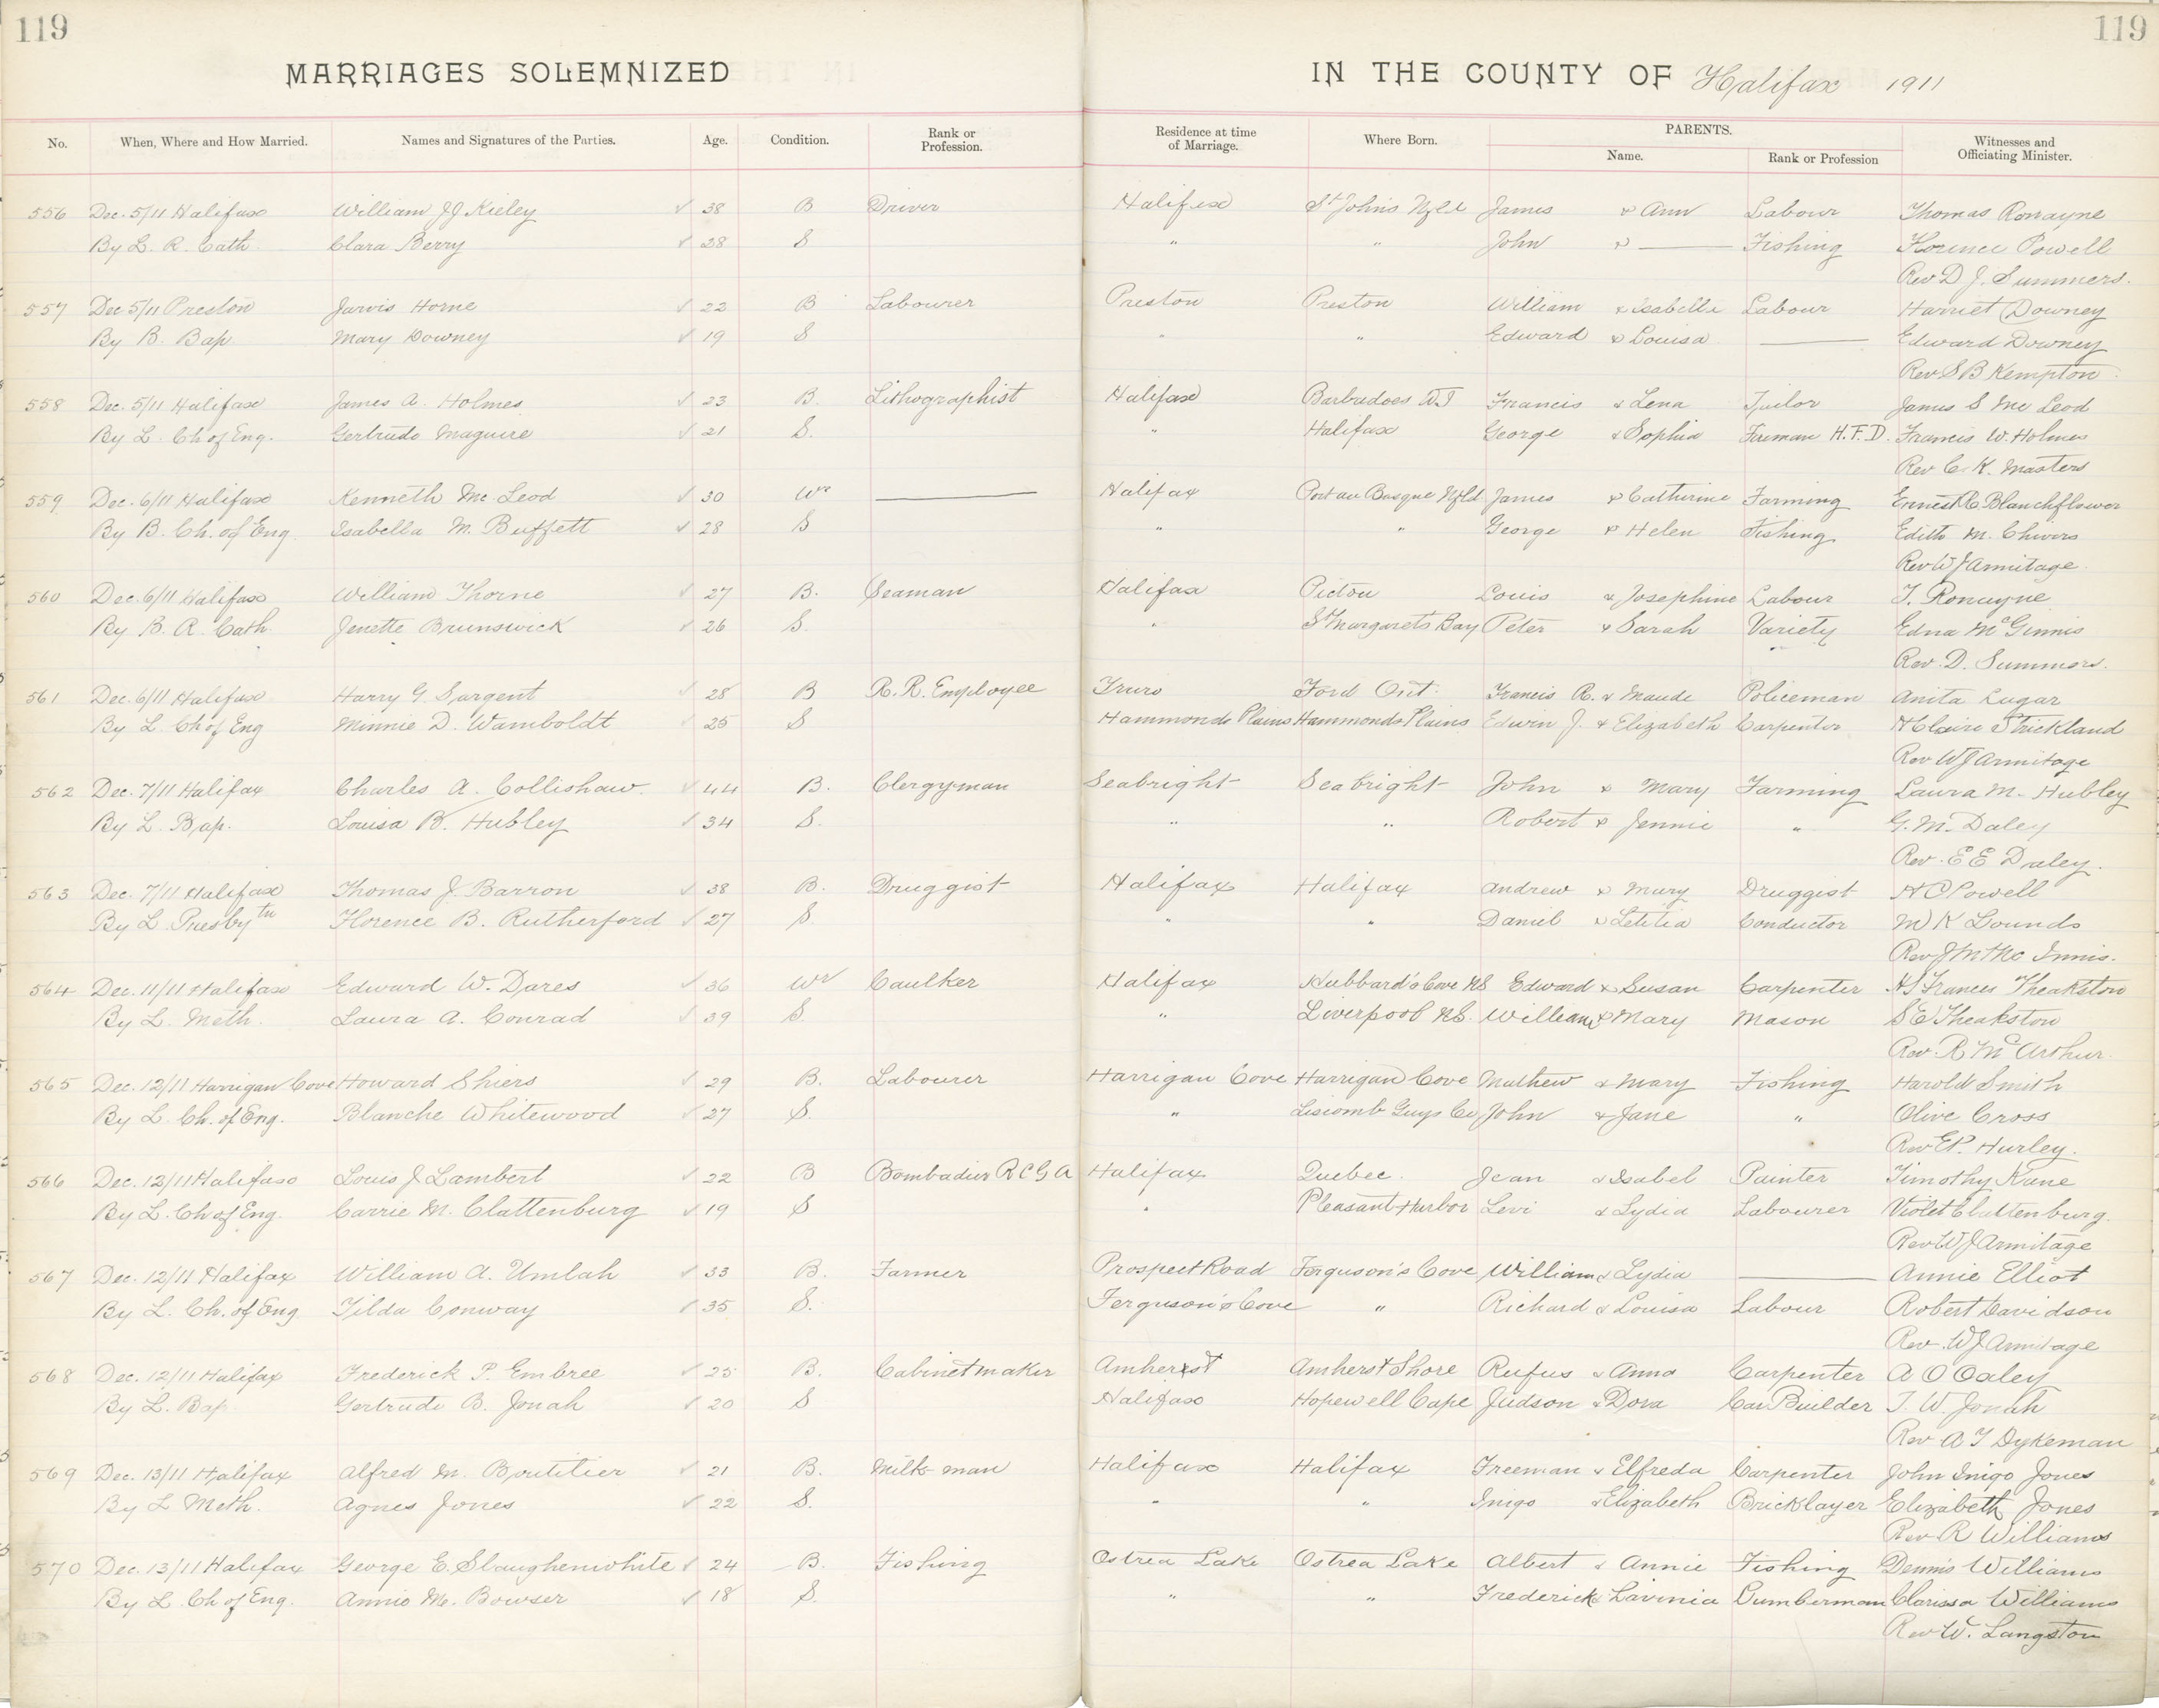 119 119
MARRIAGES SOLEMNIZED IN THE COUNTY OF Halifax 1911
No. When, Where and How Married. Names and Signatures of the Parties. Age. Condition. Rank or Profession. Residence at time of Marriage. Where Born. PARENTS. Name. Rank or Profession Witnesses and Officiating Minister.
556 Dec. 5/11 Halifax William J J Kieley ✓ 38 B Driver Halifax St Johns Nfld James & Ann Labour Thomas Ronayne
By L. R. Cath. Clara Berry ✓ 28 S " " John & — Fishing Florence Powell
Rev D. J. Summers.
557 Dec 5/11 Preston Jarvis Horne ✓ 22 B Labourer Preston Preston William & Isabella Labour Harriet Downey
By B. Bap. Mary Downey ✓ 19 S " " Edward & Louisa — Edward Downey
Rev S B Kempton
558 Dec. 5/11 Halifax James A. Holmes ✓ 23 B. Lithographist Halifax Barbadoes W.I Francis & Lena Tailor James S Mc Leod
By L. Ch of Eng. Gertrude Maguire ✓ 21 S. " Halifax George & Sophia Fireman H.F.D. Francis W. Holmes
Rev C. K. Masters
559 Dec. 6/11 Halifax Kenneth Mc. Leod ✓ 30 Wr — Halifax Port au Basque Nfld James & Catherine Farming Ernest C. Blanchflower
By B. Ch. of Eng Isabella M. Buffett ✓ 28 S " " George & Helen Fishing Edith M. Chivers
Rev W J Armitage.
560 Dec. 6/11 Halifax William Thorne ✓ 27 B. Seaman Halifax Pictou Louis & Josephine Labour T. Ronayne
By B. R. Cath. Jenette Brunswick ✓ 26 S. " St Margarets Bay Peter & Sarah Variety Edna McGinnis
Rev. D. Summers.
561 Dec. 6/11 Halifax Harry G. Sargent ✓ 28 B R.R. Employee Truro Ford Ont. Francis R. & Maude Policeman Anita Lugar
By L. Ch of Eng Minnie D. Wamboldt ✓ 25 S Hammonds Plains Hammonds Plains Edwin J. & Elizabeth Carpenter H Claire Strickland
Rev W J Armitage
562 Dec. 7/11 Halifax Charles A. Collishaw. ✓ 44 B. Clergyman Seabright Seabright John & Mary Farming Laura M. Hubley
By L. Bap. Louisa B. Hubley ✓ 34 S. " " Robert & Jennie " G. M. Daley
Rev. E E Daley.
563 Dec. 7/11 Halifax Thomas J. Barron ✓ 38 B. Druggist Halifax Halifax Andrew & Mary Druggist H C Powell
By L. Presbytn Florence B. Rutherford ✓ 27 S " " Daniel & Letitia Conductor M K Lounds
Rev J M Mc Innis.
564 Dec. 11/11 Halifax Edward W. Dares ✓ 36 Wr Caulker Halifax Hubbard's Cove NS Edward & Susan Carpenter H S Frances Theakston
By L. Meth. Laura A. Conrad ✓ 39 S. " Liverpool N.S. William & Mary Mason S E Theakston
Rev. R McArthur.
565 Dec. 12/11 Harrigan Cove Howard Shiers ✓ 29 B. Labourer Harrigan Cove Harrigan Cove Mathew & Mary Fishing Harold Smith
By L. Ch. of Eng. Blanche Whitewood ✓ 27 S. " Liscomb Guys Co John & Jane " Olive Cross
Rev E P. Hurley.
566 Dec. 12/11 Halifax Louis J Lambert ✓ 22 B Bombadier R C G A Halifax Quebec. Jean & Isabel Painter Timothy Kane
By L. Ch of Eng. Carrie M. Clattenburg ✓ 19 S " Pleasant Harbor Levi & Lydia Labourer Violet Clattenburg.
Rev W J Armitage
567 Dec. 12/11 Halifax William A. Umlah ✓ 33 B. Farmer Prospect Road Ferguson's Cove William & Lydia — Annie Elliot
By L. Ch. of Eng Tilda Conway ✓ 35 S. Ferguson's Cove " Richard & Louisa Labour Robert Davidson
Rev. W J Armitage
568 Dec. 12/11 Halifax Frederick P. Embree ✓ 25 B. Cabinetmaker Amherst Amherst Shore Rufus & Anna Carpenter A O Oxley
By L. Bap. Gertrude B. Jonah ✓ 20 S Halifax Hopewell Cape Judson & Dora Car Builder I. W. Jonah
Rev A J Dykeman
569 Dec. 13/11 Halifax Alfred M. Boutilier ✓ 21 B. Milk man Halifax Halifax Freeman & Elfreda Carpenter John Inigo Jones
By L Meth. Agnes Jones ✓ 22 S. " " Inigo & Elizabeth Bricklayer Elizabeth Jones
Rev R Williams
570 Dec. 13/11 Halifax George E. Slaughenwhite ✓ 24 B. Fishing Ostrea Lake Ostrea Lake Albert & Annie Fishing Dennis Williams
By L Ch of Eng. Annie M. Bowser ✓ 18 S. " " Frederick & Lavinia Lumberman Clarissa Williams
Rev W. Langston